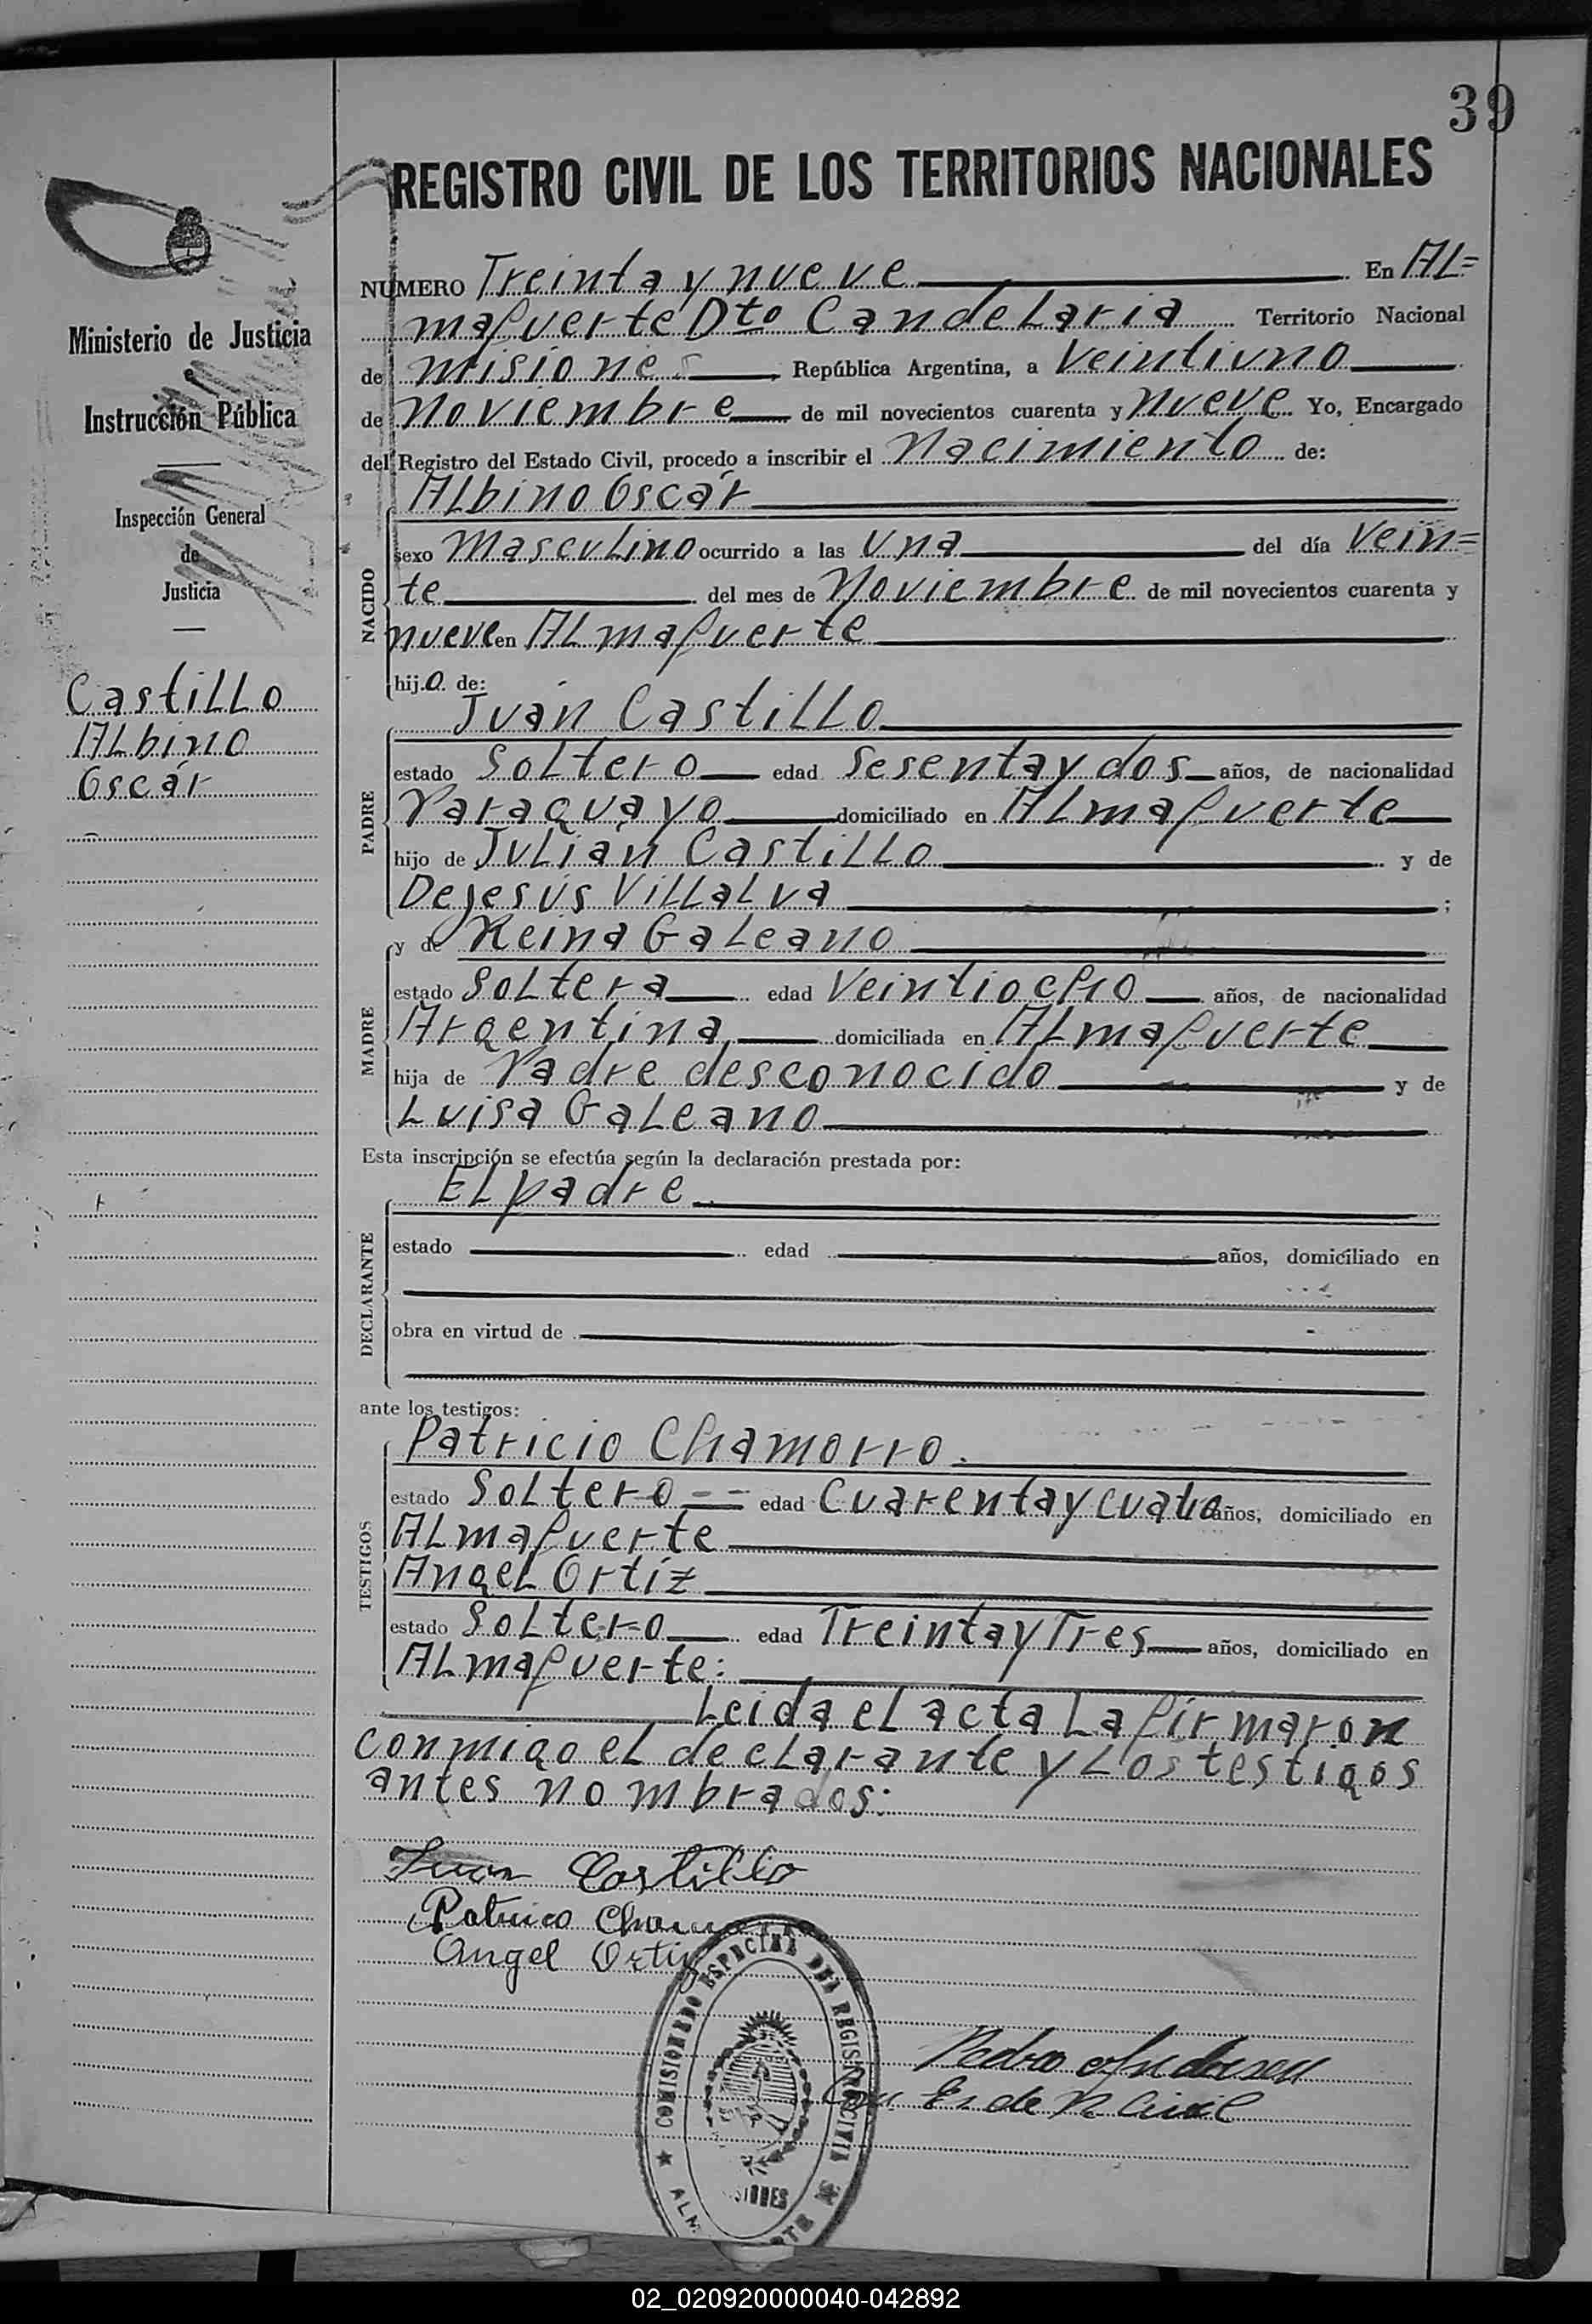 39
REGISTRO CIVIL DE LOS TERRITORIOS NACIONALES
Ministerio de Justicia
e
Instrucción Pública
Inspección General
de
Justicia
Castillo
Albino
Oscár
NUMERO Treinta y nueve En Al=
mafuerte Dto Candelaria Territorio Nacional
de misiones, República Argentina, a Veintiuno
de noviembre de mil novecientos cuarenta y nueve Yo, Encargado
del Registro del Estado Civil, procedo a inscribir el Nacimiento de:
NACIDO
Albino Oscár
sexo masculino ocurrido a las una del día Vein=
te del mes de Noviembre de mil novecientos cuarenta y
nueve en Almafuerte
hijo de:
PADRE
Juán Castillo
estado Soltero edad Sesenta y dos años, de nacionalidad
Paraguayo domiciliado en Almafuerte
hijo de Julián Castillo y de
Dejesús Villalva ;
MADRE
y de Reina Galeano
estado Soltera edad Veintiocho años, de nacionalidad
Argentina, domiciliada en Almafuerte
hija de Padre desconocido y de
Luisa Galeano
Esta inscripción se efectúa según la declaración prestada por:
DECLARANTE
El padre
estado edad años, domiciliado en
obra en virtud de
ante los testigos:
TESTIGOS
Patricio Chamorro.
estado Soltero == edad Cuarenta y cuatro años, domiciliado en
Almafuerte
Angel Ortíz
estado Soltero edad Treinta y Tres años, domiciliado en
Almafuerte:
Leida el acta la firmaron
conmigo el declarante y los testigos
antes nombrados:
Juan Castillo
Patricio
Angel Ortiz
COMISIONADO ESPECIAL DEL REGISTRO CIVIL
Pedro Andersen
de R Civil
02_020920000040-042892